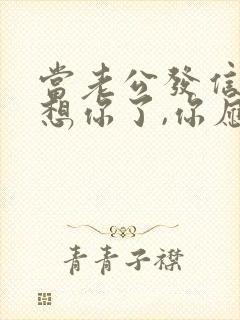 當老公發信
想你了,你應
青青子襟